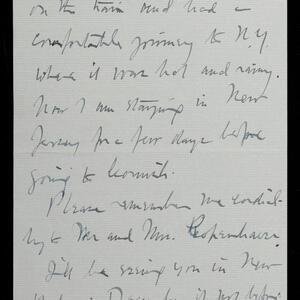 on the train and had a
comfortable journey to N.Y.
where it was hot and rainy.
Now I am staying in New
Jersey for a few days before
going to
Please remember me cordial-
ly to Mr and Mrs. Copenhaver.
I'll be seeing you in New
in if not before